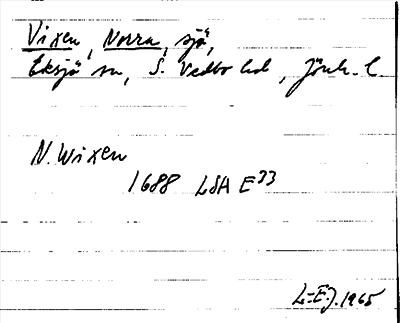 Vixen, Norra, sjö,
Eksjö sn, S. Vedbo hd, Jönk. l.
N. Wixen
1688 LSA E33
L-E.J. 1965